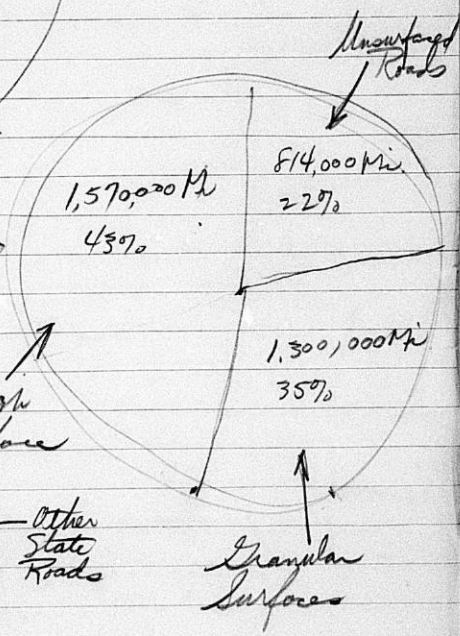 Unsurfaced
Roads
814,000 Mi.
22%
1,570,000 Mi
43%
1,300,000 Mi
35%
Other
State
Roads
Granular
Surfaces